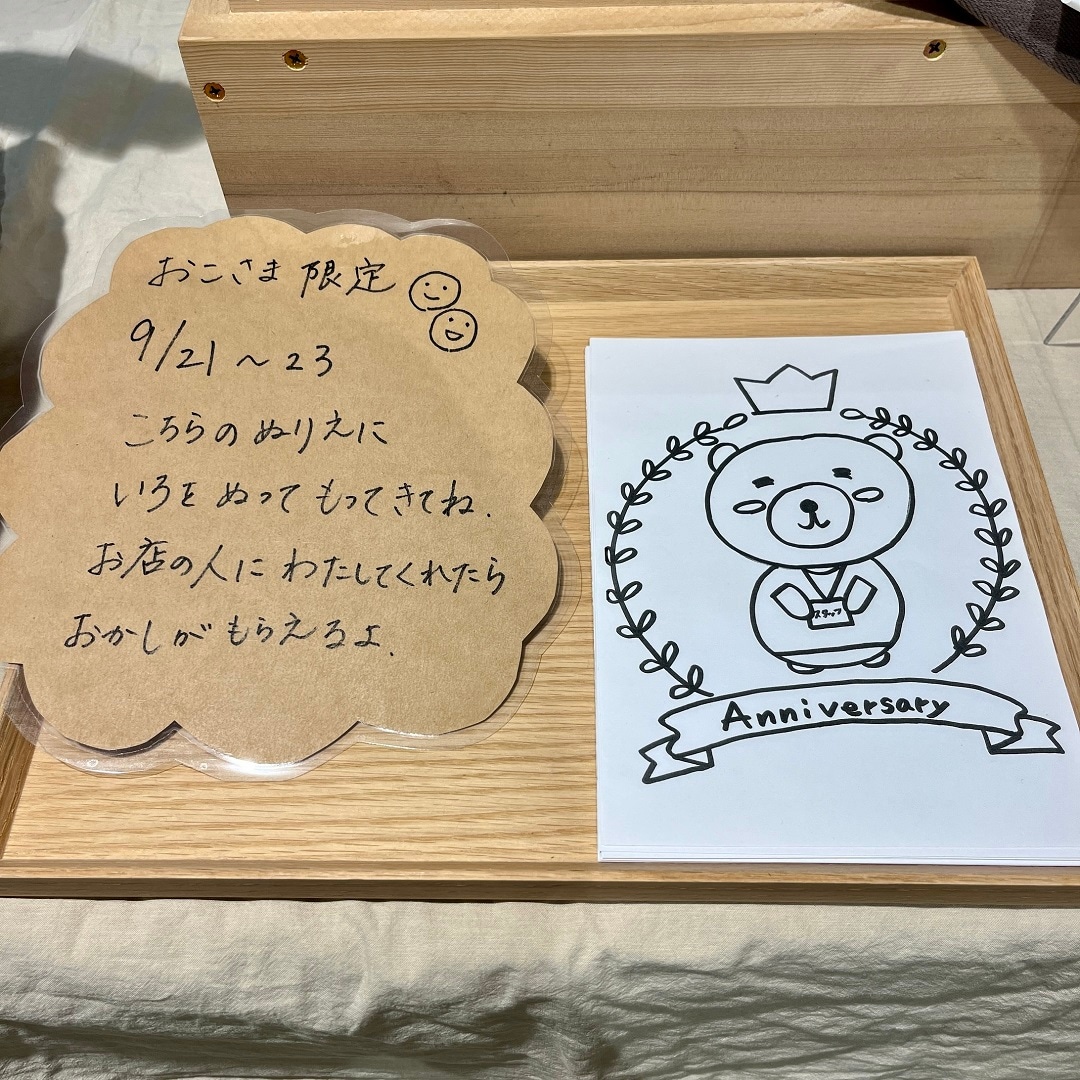 おこさま 限定
9/21～23
こちらの ぬりえに
いろを ぬって もってきてね.
お店の人に わたしてくれたら
おかしが もらえるよ.
スタッフ
Anniversary